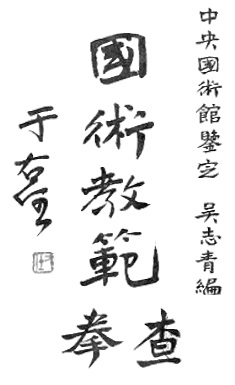 中央國術館鑒定 吳志青編
國術教範
查拳
于右任